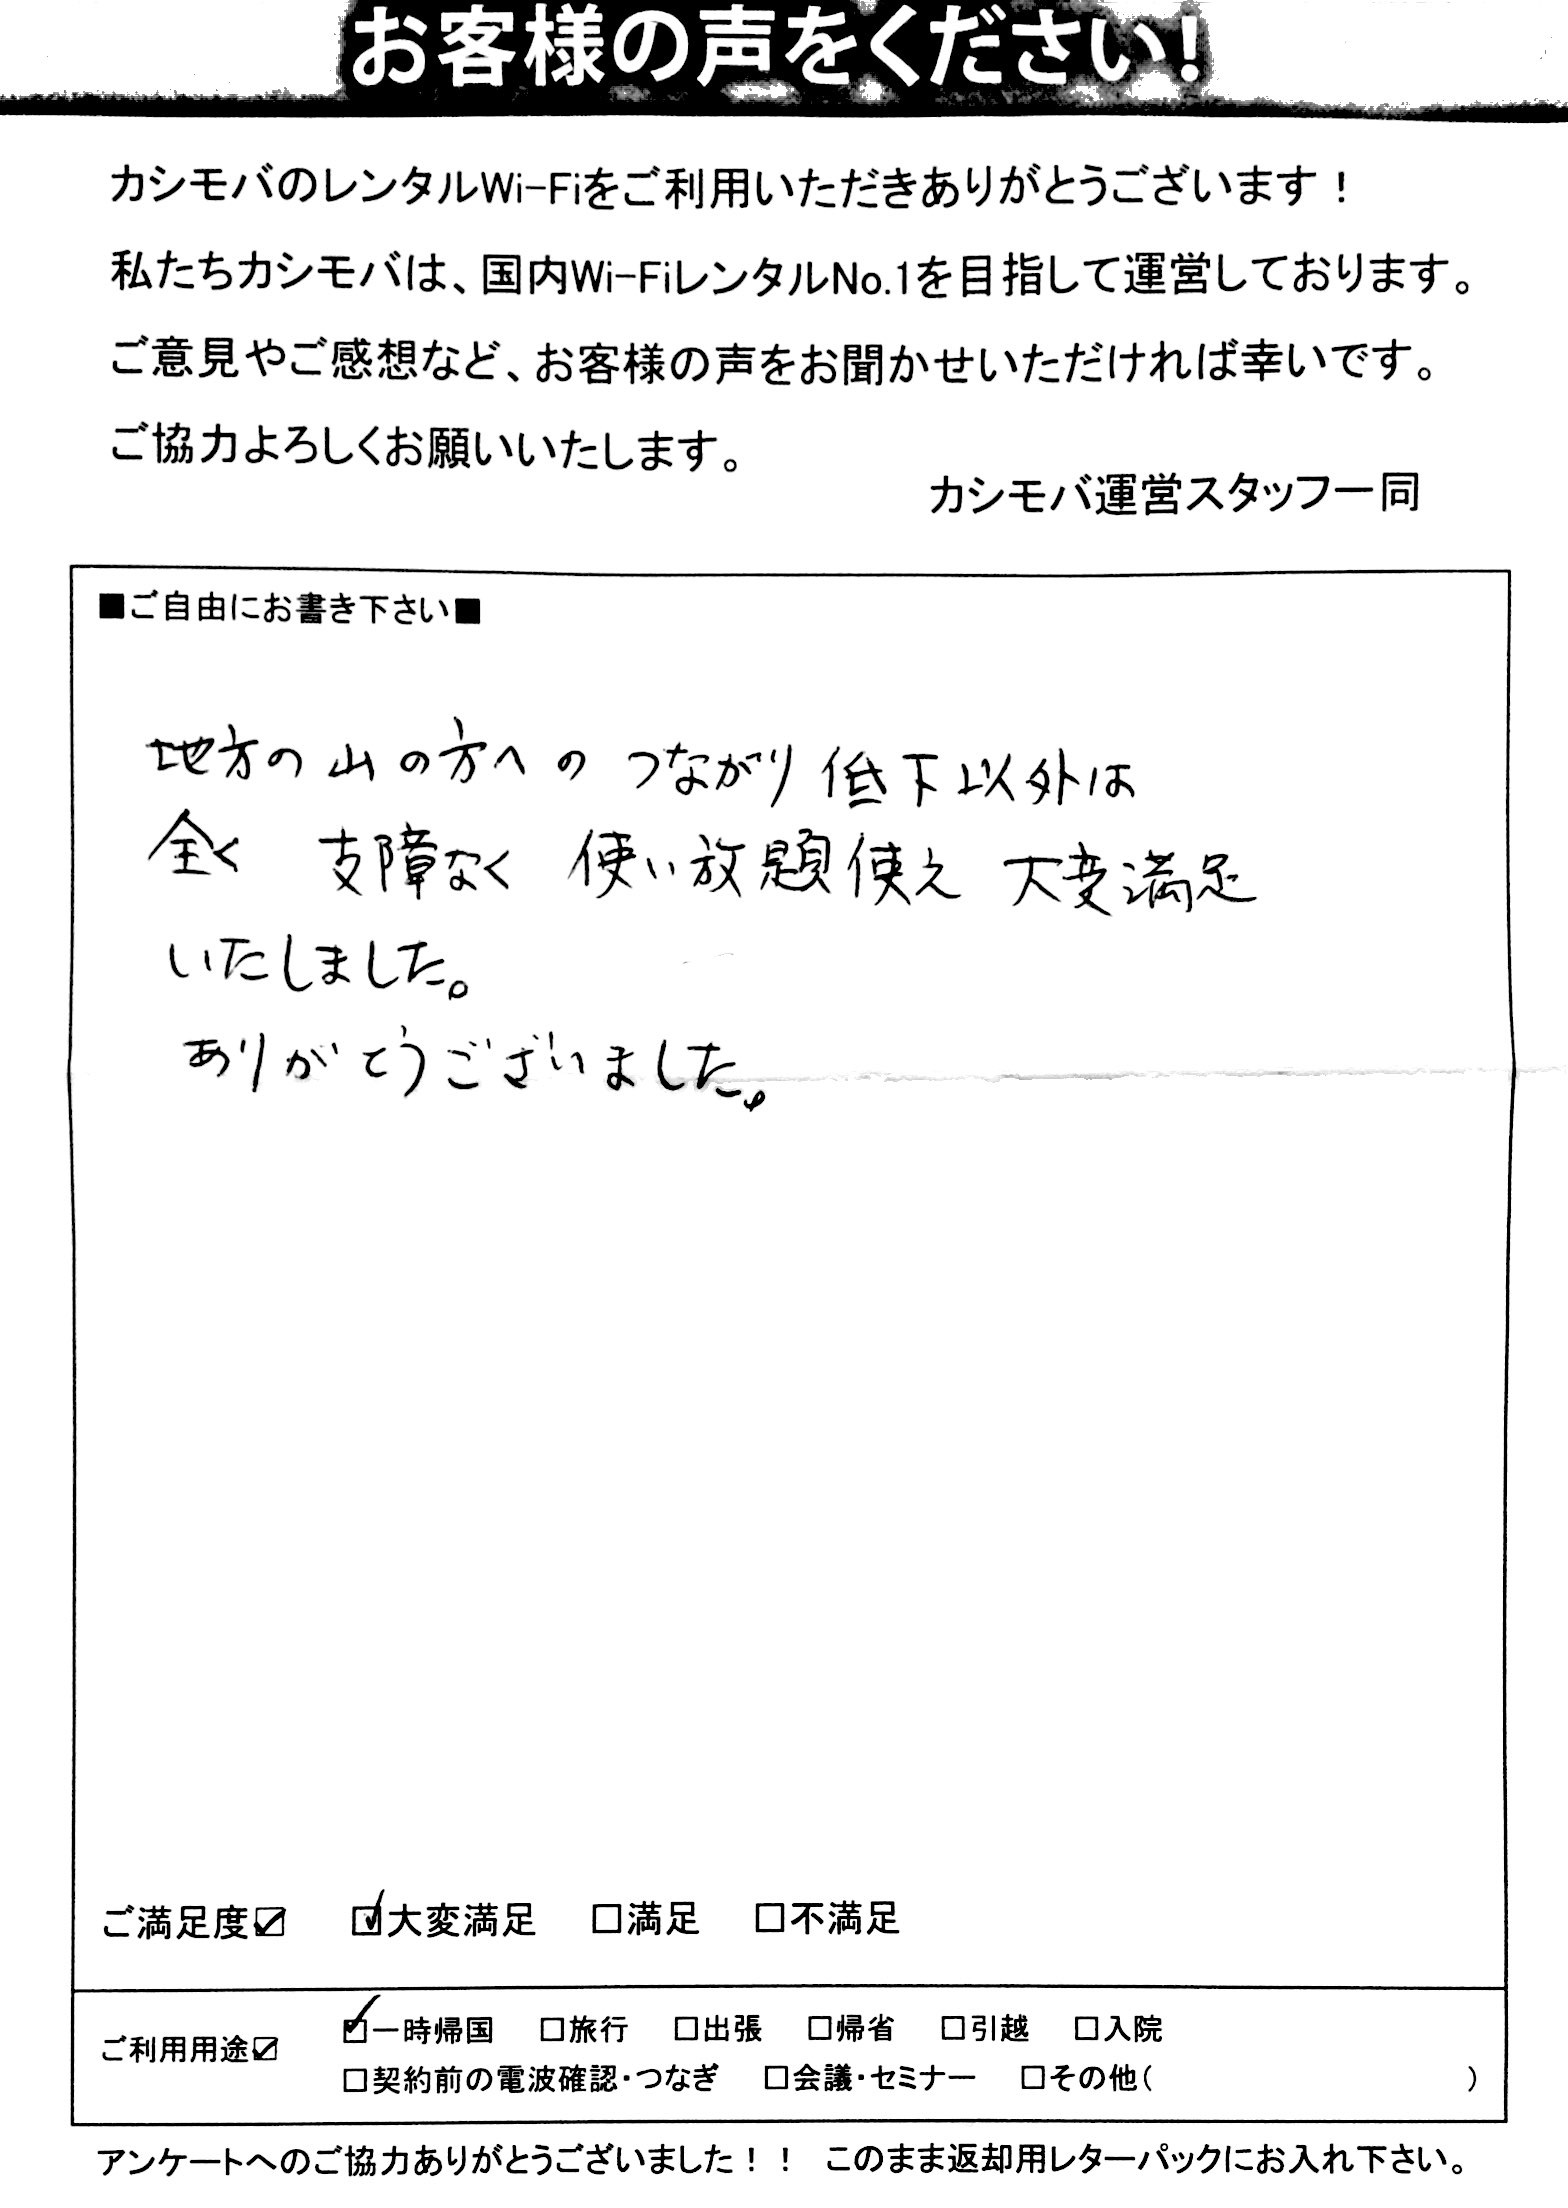 お客様の声をください!
カシモバのレンタルWi-Fiをご利用いただきありがとうございます！
私たちカシモバは、国内Wi-FiレンタルNo.1を目指して運営しております。
ご意見やご感想など、お客様の声をお聞かせいただければ幸いです。
ご協力よろしくお願いいたします。
カシモバ運営スタッフ一同
■ご自由にお書き下さい■
地方の山の方へのつながり低下以外は
全く 支障なく 使い放題使え 大変満足
いたしました。
ありがとうございました。
ご満足度☑ ☑大変満足 □満足 □不満足
ご利用用途☑ ☑一時帰国 □旅行 □出張 □帰省 □引越 □入院
□契約前の電波確認・つなぎ □会議・セミナー □その他( )
アンケートへのご協力ありがとうございました！！ このまま返却用レターパックにお入れ下さい。